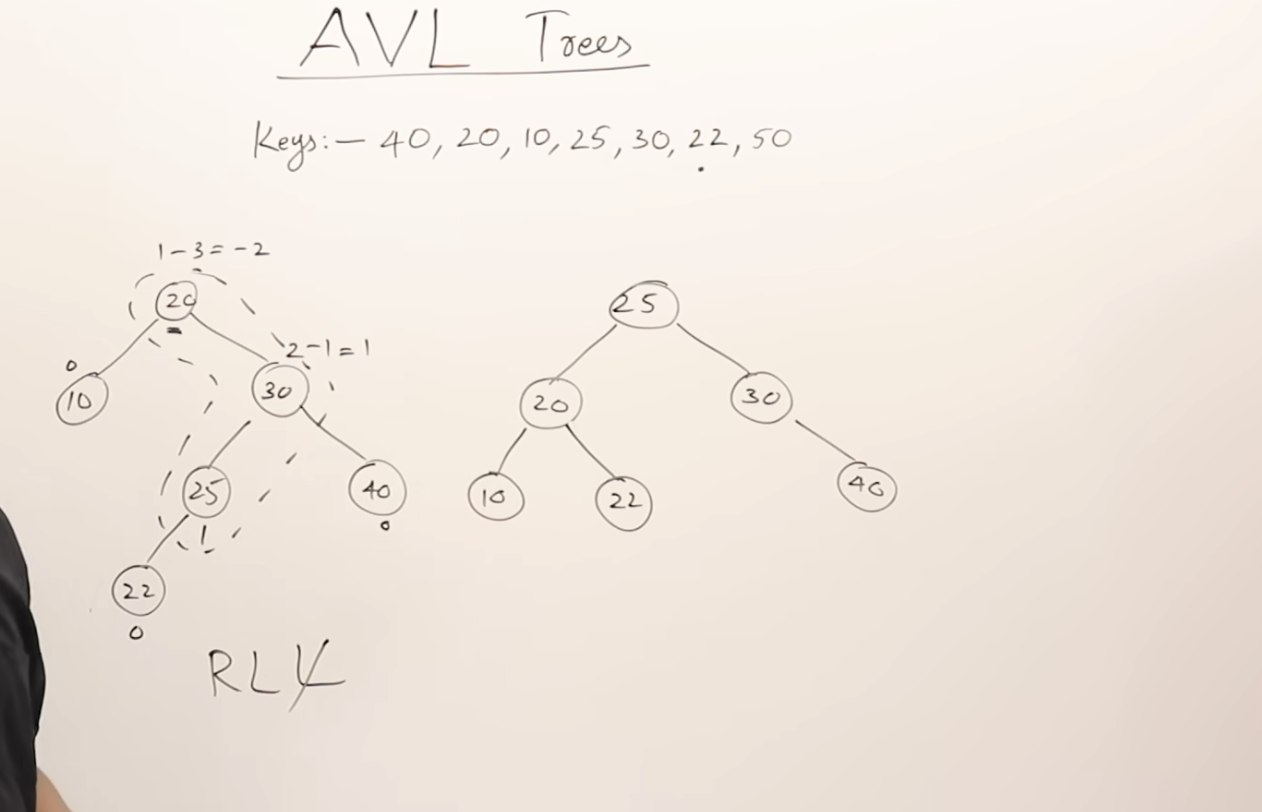 AVL Trees
Keys:- 40, 20, 10, 25, 30, 22, 50
1-3=-2
20
2-1=1
0
10
30
25
40
1
0
22
0
RLL
25
20
30
10
22
40